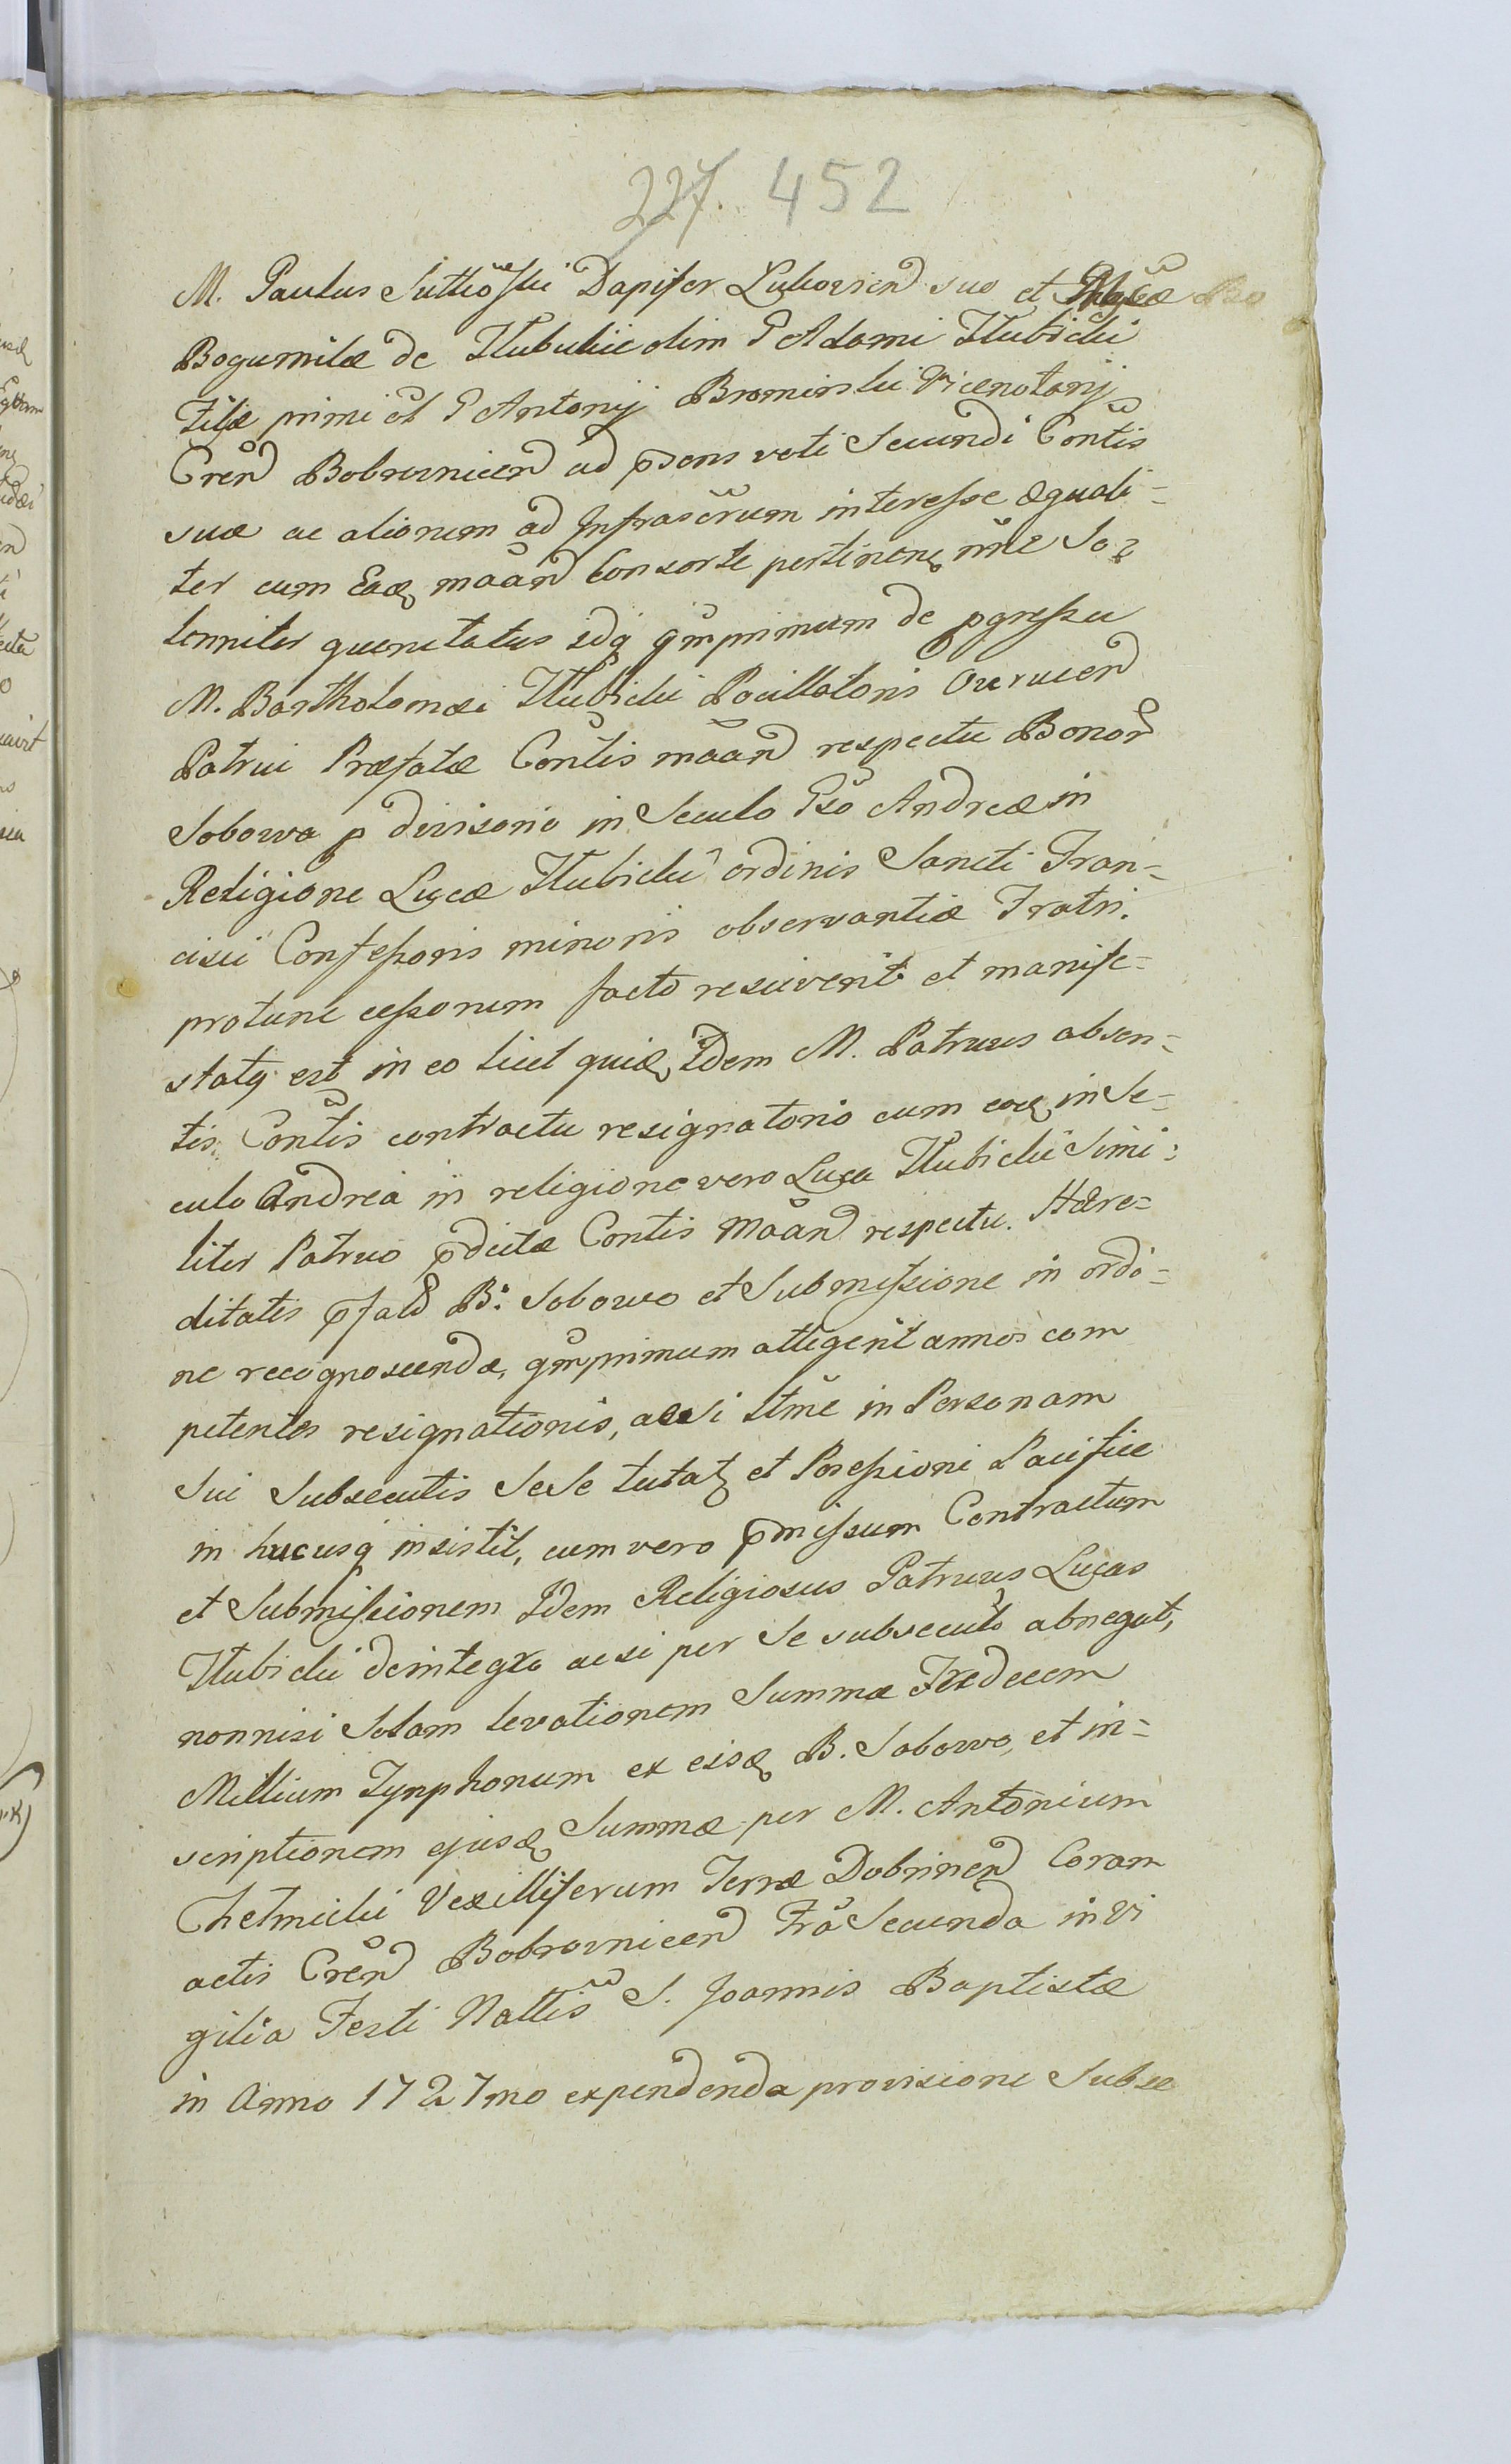 227. 452
M. Paulus Suttkoski Dapifer Lukovien suo et
Bogumilæ de Hlubickie olim P Adami Hlubicki
Filiæ primi et P Antonij Brominski Vicenotarij
Cren Bobrovnicen ad psens voti Secundi Contis
suæ ac aliorum ad Infrascrum interesse æquali-
ter cum Eadę maan Consorte pertinenę nne So-
lenniter querutatus idq qmprimum de pgressu
M. Bartholomæi Hlubicki Pocillatoris Ovrucen
Patrui Præfatæ Contis maan respectu Bonor
Sobowa p divisorio in Seculo Pso Andreæ in
Religione Lucæ Hlubicki ordinis Sancti Fran-
cisci Confessoris minoris observantiæ Fratri.
protunc cessorum facto resciverit et manife-
statq est in eo licet quia, Idem M. Patruus absen-
tis Contis contractu resignatorio cum eodę in Se-
culo Andrea in religione vero Luca Hlubicki Simi-
liter Patruo pdictæ Contis maan respectu. Hære-
ditatis pfat B. Sobowo et Submissione in ordi-
ne recognoscendæ, qmprimum attigerit annos com
petentes resignationis, acsi ttme in Personam
Sui Subsecutis Sese tutatę et Possessioni Pacifice
in hucusq insistit, cum vero pmissum Contractum
et Submissionem Idem Religiosus Patruus Lucas
Hlubicki deintegro acsi per Se subsecuto abnegat,
nonnisi Solam levationem Summæ Tredecem
Millium Tynphonum ex eisdę B. Sobowo, et in-
scriptionem ejusdę Summæ per M. Antonium
Chetmicki Vexilliferum Terræ Dobrinen Coram
actis Cren Bobrovnicen Fra Secunda in Vi
gilia Festi Nattis S. Joannis Baptistæ
in Anno 1727mo expendenda provisione Subse